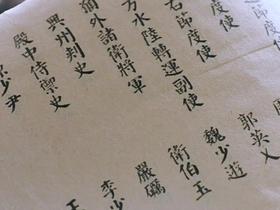 度使
郭英
右節度使
魏少遊
方水陸轉運副使
衛伯玉
爾外諸衛將軍
嚴礪
興州刺史
李少
殿中侍禦史
王
少尹